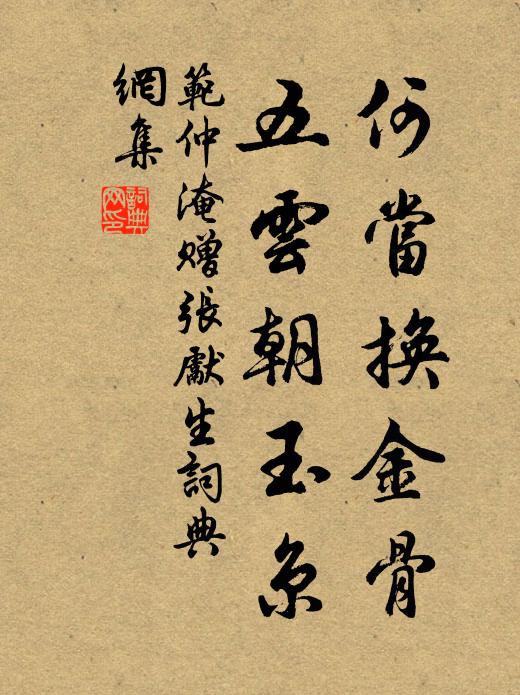 何當換金骨
五雲朝玉京
範仲淹贈張獻生詞典
網集
詞典
网印